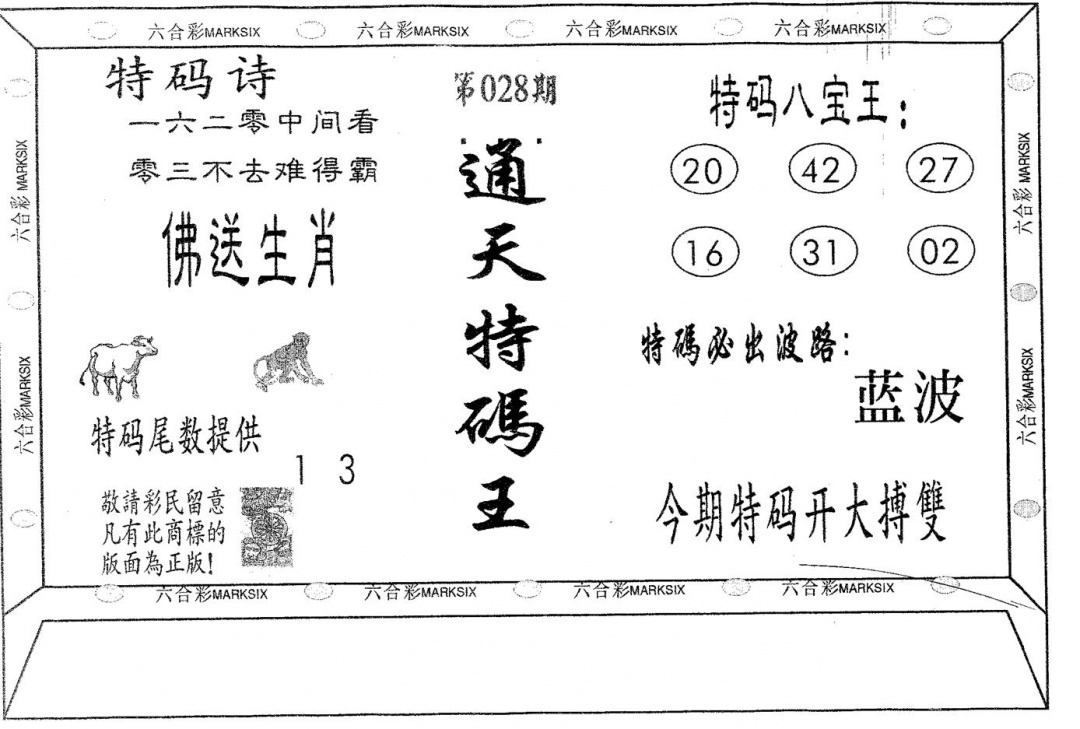 六合彩MARKSIX 六合彩MARKSIX 六合彩MARKSIX 六合彩MARKSIX
特码诗
一六二零中间看
零三不去难得霸
佛送生肖
特码尾数提供
1 3
敬請彩民留意
凡有此商標的
版面為正版!
第028期
通天特碼王
特码八宝王:
20 42 27
16 31 02
特碼必出波路:
蓝波
今期特码开大搏雙
六合彩 MARKSIX
六合彩MARKSIX
六合彩 MARKSIX
六合彩MARKSIX
六合彩MARKSIX 六合彩MARKSIX 六合彩MARKSIX 六合彩MARKSIX